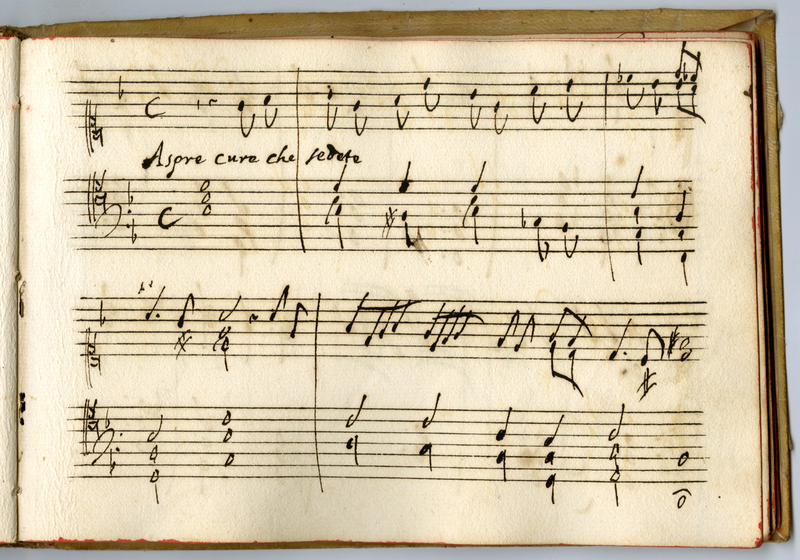 Aspre cure che sedete